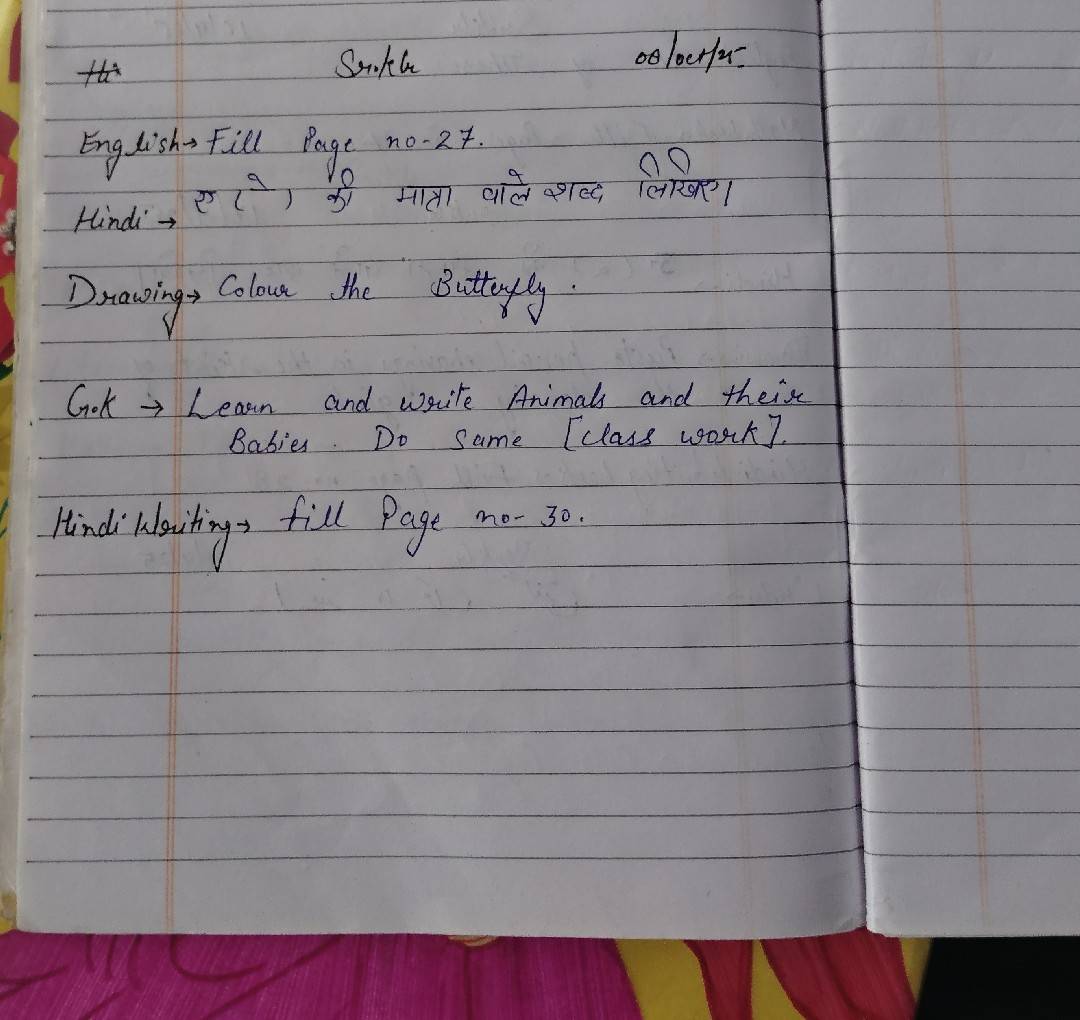 Sr.k.G 08/oct/25
English → Fill Page no-27.
Hindi → ए ( े ) की मात्रा वाले शब्द लिखिए।
Drawing → Colour the Butterfly.
G.K → Learn and write Animals and their
Babies. Do Same [class work].
Hindi Writing → fill Page no- 30.